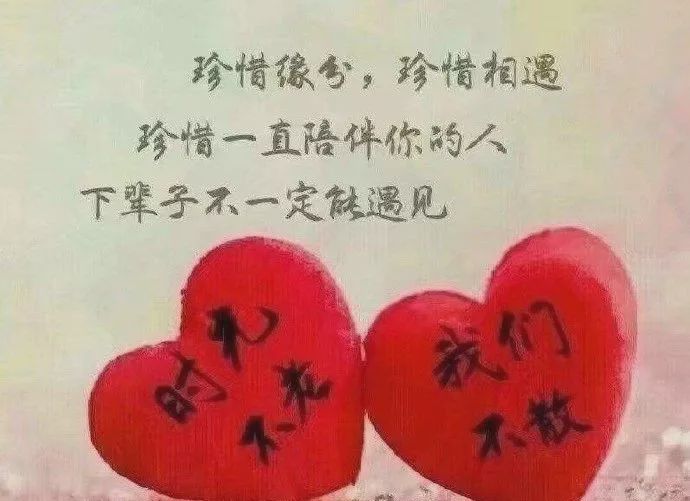 珍惜缘分，珍惜相遇
珍惜一直陪伴你的人
下辈子不一定能遇见
时光
不老
我们
不散